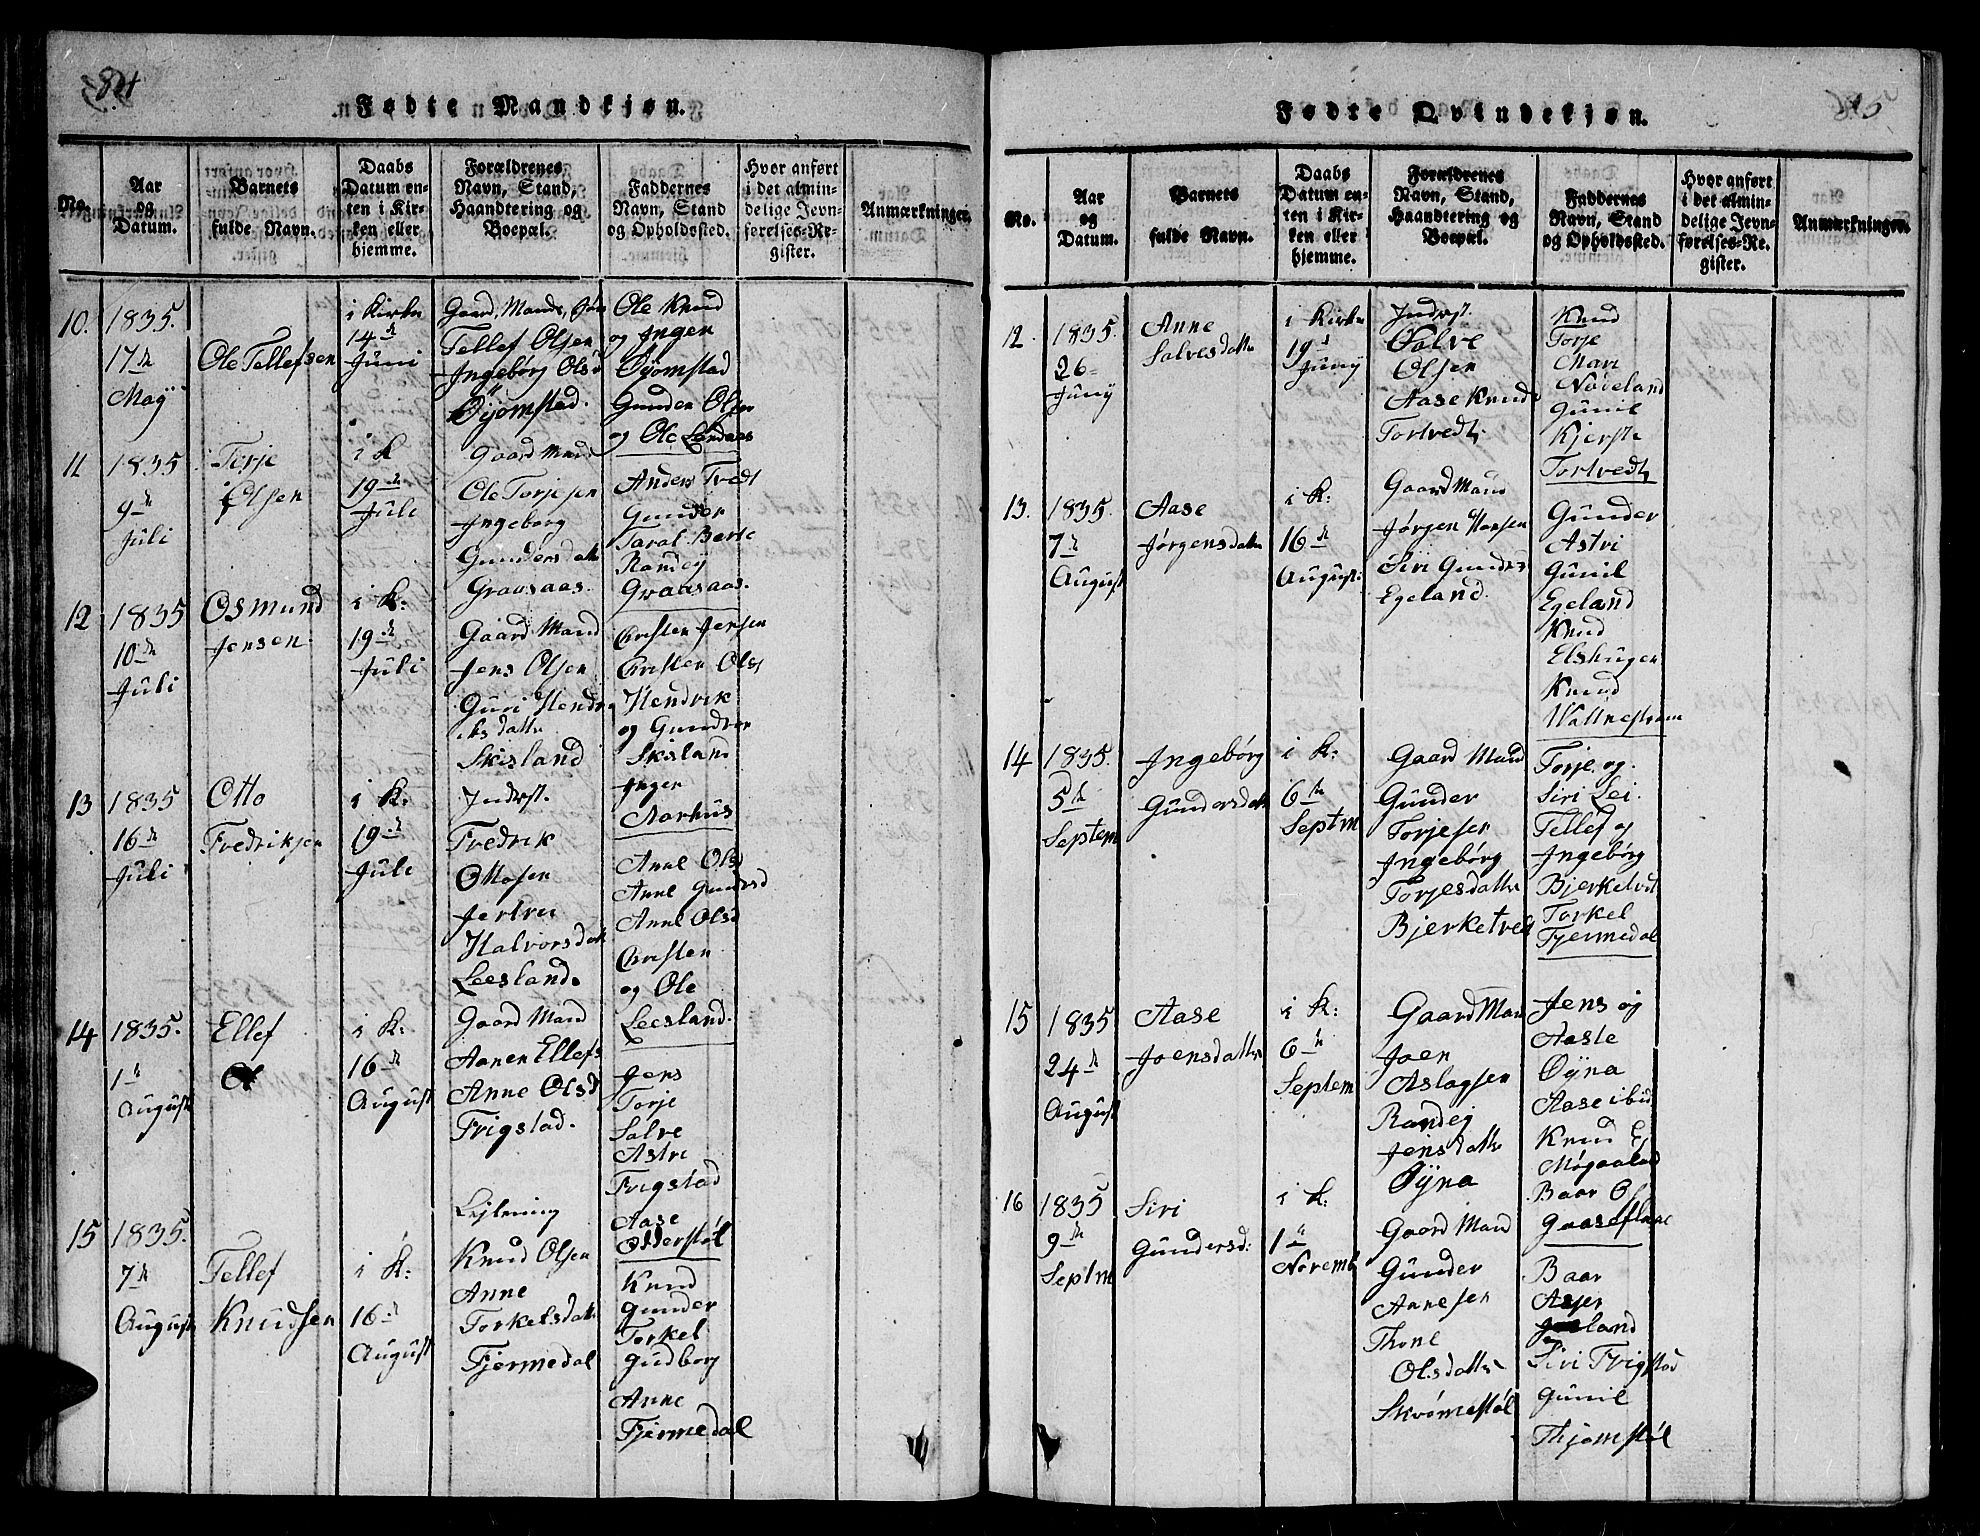 Fødte Mandkjøn.
No.
Aar
og
Datum.
Barnets
fulde Navn.
Daabs
Datum en-
ten i Kir-
ken eller
hjemme.
Forældrenes
Navn, Stand,
Haandtering og
Boepæl.
Faddernes
Navn, Stand
og Opholdssted.
Hvor anført
i det almin-
delige Jevn-
førelses-Re-
gister.
Anmærkninger.
10.
1835.
17de
May
Ole Tellefsen
i Kirke
14de
Juni
Gaard Mands
Tellef Olsen
Ingebørg Olsd
Øyomstad.
Ole Knud
og Inger
Øyomstad
Gunder Olsen
og Ole
11
1835
9de
Juli
Terje
Olsen
i K
19de
Juli
Gaard Mand
Ole Torjesen
Ingeborg
Gundersdatter
Graasaas.
Anders Tvedt
Gunder
Taral Berte
Randey
Graasaas.
12
1835
10de
Juli
Osmund
Jensen
i K:
19de
Juli
Gaard Mand
Jens Olsen
Guri Hend
riksdatter
Skisland
Christen Jensen
Christen Ols
Hendrik
og Gundvor
Skisland
Inger
Aarhus
13
1835
16de
Juli
Otto
Fredriksen
i K:
19de
Juli
Inderst.
Fredrik
Ottosen
Jertru
Halvorsdatter
Leesland.
Anne Olsd
Anne Gundersd
Anne Olsd
Christen
og Ole
Leesland.
14
1835.
1de
August
Ellef
i K:
16de
August
Gaard Mand
Aanen Ellefs
Anne Olsd
Frigstad.
Jens
Torje
Salve
Astri
Frigstad
Aase
Otterstøl
15
1835.
7de
August
Tellef
Knudsen
i K:
16de
August
Lejlening
Knud Olsen
Anne
Torkelsdatter
Fjermedal
Knud
Gunder
Torkel
Gudborg
Anne
Fjermedal
Fødte Qvindekjøn.
No.
Aar
og
Datum.
Barnets
fulde Navn.
Daabs
Datum en-
ten i Kir-
ken eller
hjemme.
Forældrenes
Navn, Stand,
Haandtering og
Boepæl.
Faddernes
Navn, Stand
og Opholdssted.
Hvor anført
i det almin-
delige Jevn-
førelses-Re-
gister.
Anmærkninger.
12.
1835.
26
Juny
Anne
Salvesdatter
i Kirke
19de
Juny
Inderst.
Salve
Olsen
Aase Knuds
Tortvedt.
Knud
Torje
Mari
Nødeland
Gunil
Kjersti
Tortvedt
13.
1835.
7de
August
Aase
Jørgensdatter
i K:
16de
August
Gaard Mand
Jørgen Hansen
Siri Gunders
Egeland.
Gunder
Astri
Gunil
Egeland
Knud
Elshugen
Knud
14
1835.
5de
Septem
Ingebørg
Gundersdatter
i K:
6de
Septm
Gaard Mand
Gunder
Torjesen
Ingebørg
Torjesdatter
Bjerketvedt
Torje og
Siri Lei.
Tellef og
Ingebørg
Bjerketvedt
Torkel
Fjermedal
15
1835
24de
August
Aase
Joensdatter
i K:
6de
Septem
Gaard Mand
Joen
Aslagsen
Randej
Jensdatter
Øyna
Jens og
Aaste
Øyna
Aase ibid
Knud
Baar
16
1835
9de
Septm
Siri
Gundersd:
i K:
1de
Novemb
Gaard Mand
Gunder
Annesen
Thone
Olsdatter
Skrømestøl
Baar
Siri Frigstad
Gunil
Thjomstøl